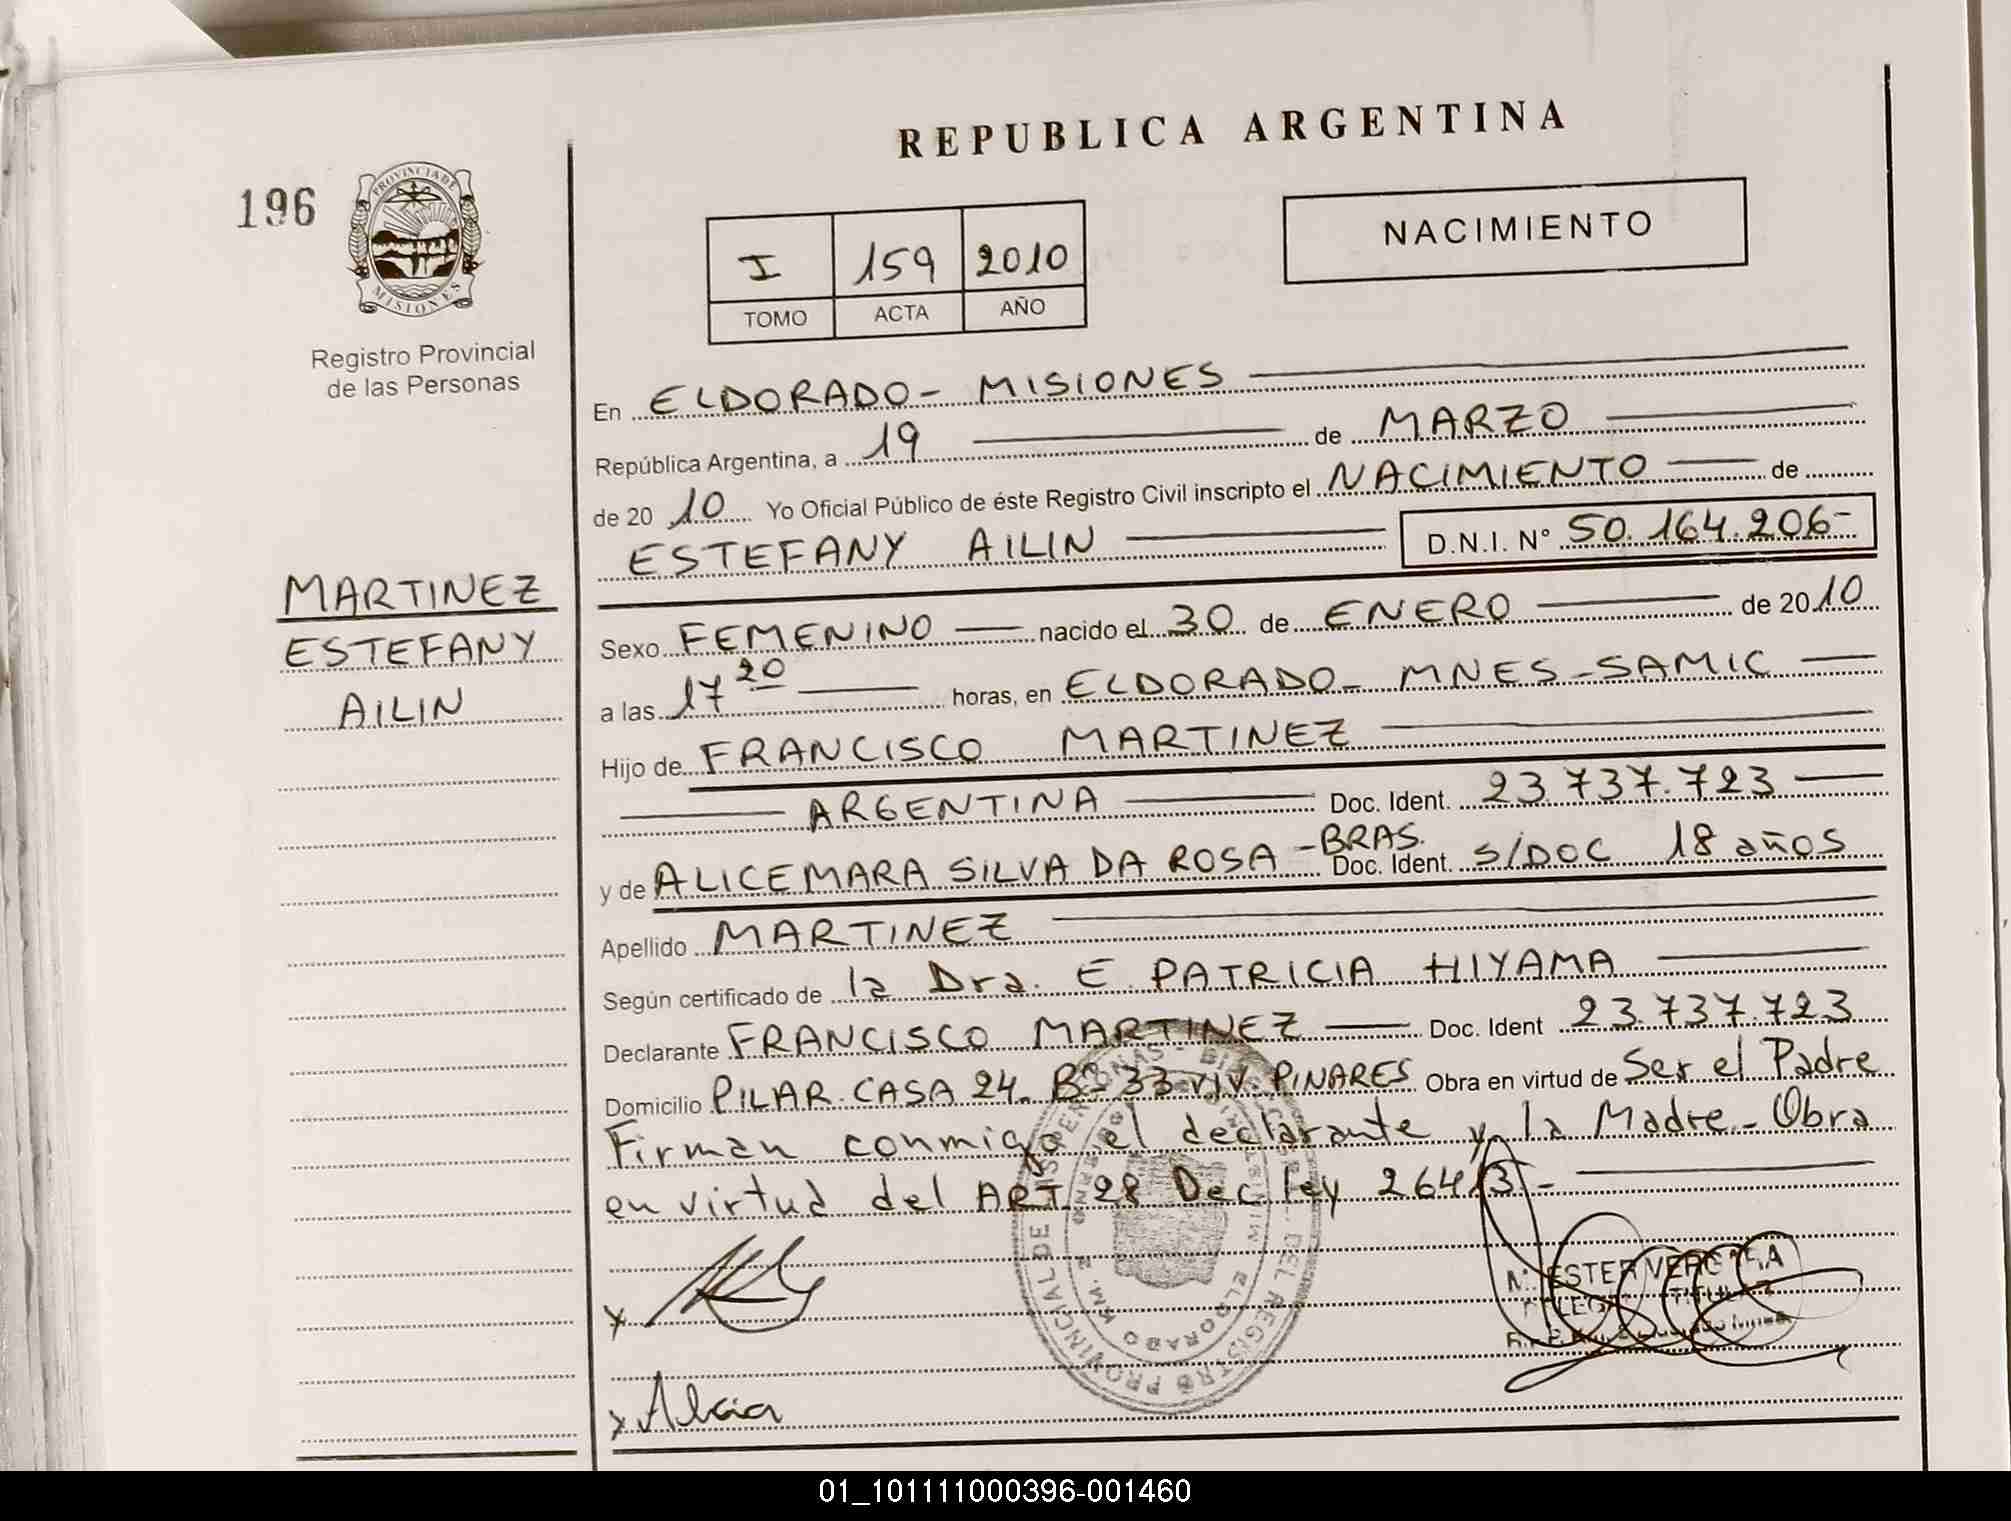 REPUBLICA ARGENTINA
196
PROVINCIA DE
MISIONES
Registro Provincial
de las Personas
I 159 2010
TOMO ACTA AÑO
NACIMIENTO
En ELDORADO - MISIONES
República Argentina, a 19 de MARZO
de 20 10 Yo Oficial Público de éste Registro Civil inscripto el NACIMIENTO de
ESTEFANY AILIN D.N.I. Nº 50.164.206-
MARTINEZ
ESTEFANY
AILIN
Sexo FEMENINO nacido el 30 de ENERO de 2010
a las 17 20 horas, en ELDORADO - MNES - SAMIC
Hijo de FRANCISCO MARTINEZ
ARGENTINA Doc. Ident. 23.737.723
y de ALICEMARA SILVA DA ROSA - BRAS. Doc. Ident. S/DOC 18 años
Apellido MARTINEZ
Según certificado de la Dra. E PATRICIA HIYAMA
Declarante FRANCISCO MARTINEZ Doc. Ident 23.737.723
Domicilio PILAR CASA 24. Bº 33 VIV. PINARES Obra en virtud de Ser el Padre
Firman conmigo el declarante y la Madre - Obra
en virtud del ART. 28 Dec ley
REGISTRO PROVINCIAL DE
ELDORADO KM. 2
X
X Alicia
ESTER
01_101111000396-001460